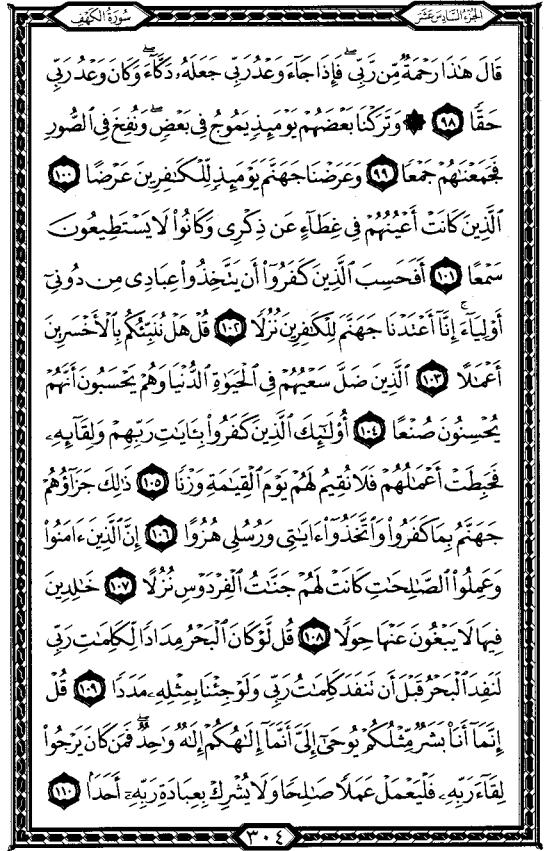 الجزء السادس عشر
سورة الكهف
قَالَ هَٰذَا رَحْمَةٌ مِّن رَّبِّي ۖ فَإِذَا جَآءَ وَعْدُ رَبِّي جَعَلَهُۥ دَكَّآءَ ۖ وَكَانَ وَعْدُ رَبِّي
حَقًّا ٩٨ ۞ وَتَرَكْنَا بَعْضَهُمْ يَوْمَئِذٍ يَمُوجُ فِي بَعْضٍ ۖ وَنُفِخَ فِي ٱلصُّورِ
فَجَمَعْنَٰهُمْ جَمْعًا ٩٩ وَعَرَضْنَا جَهَنَّمَ يَوْمَئِذٍ لِّلْكَٰفِرِينَ عَرْضًا ١٠٠
ٱلَّذِينَ كَانَتْ أَعْيُنُهُمْ فِي غِطَآءٍ عَن ذِكْرِي وَكَانُوا۟ لَا يَسْتَطِيعُونَ
سَمْعًا ١٠١ أَفَحَسِبَ ٱلَّذِينَ كَفَرُوٓا۟ أَن يَتَّخِذُوا۟ عِبَادِي مِن دُونِيٓ
أَوْلِيَآءَ ۚ إِنَّآ أَعْتَدْنَا جَهَنَّمَ لِلْكَٰفِرِينَ نُزُلًا ١٠٢ قُلْ هَلْ نُنَبِّئُكُم بِٱلْأَخْسَرِينَ
أَعْمَٰلًا ١٠٣ ٱلَّذِينَ ضَلَّ سَعْيُهُمْ فِي ٱلْحَيَوٰةِ ٱلدُّنْيَا وَهُمْ يَحْسَبُونَ أَنَّهُمْ
يُحْسِنُونَ صُنْعًا ١٠٤ أُو۟لَٰٓئِكَ ٱلَّذِينَ كَفَرُوا۟ بِـَٔايَٰتِ رَبِّهِمْ وَلِقَآئِهِۦ
فَحَبِطَتْ أَعْمَٰلُهُمْ فَلَا نُقِيمُ لَهُمْ يَوْمَ ٱلْقِيَٰمَةِ وَزْنًا ١٠٥ ذَٰلِكَ جَزَآؤُهُمْ
جَهَنَّمُ بِمَا كَفَرُوا۟ وَٱتَّخَذُوٓا۟ ءَايَٰتِي وَرُسُلِي هُزُوًا ١٠٦ إِنَّ ٱلَّذِينَ ءَامَنُوا۟
وَعَمِلُوا۟ ٱلصَّٰلِحَٰتِ كَانَتْ لَهُمْ جَنَّٰتُ ٱلْفِرْدَوْسِ نُزُلًا ١٠٧ خَٰلِدِينَ
فِيهَا لَا يَبْغُونَ عَنْهَا حِوَلًا ١٠٨ قُل لَّوْ كَانَ ٱلْبَحْرُ مِدَادًا لِّكَلِمَٰتِ رَبِّي
لَنَفِدَ ٱلْبَحْرُ قَبْلَ أَن تَنفَدَ كَلِمَٰتُ رَبِّي وَلَوْ جِئْنَا بِمِثْلِهِۦ مَدَدًا ١٠٩ قُلْ
إِنَّمَآ أَنَا۠ بَشَرٌ مِّثْلُكُمْ يُوحَىٰٓ إِلَيَّ أَنَّمَآ إِلَٰهُكُمْ إِلَٰهٌ وَٰحِدٌ ۖ فَمَن كَانَ يَرْجُوا۟
لِقَآءَ رَبِّهِۦ فَلْيَعْمَلْ عَمَلًا صَٰلِحًا وَلَا يُشْرِكْ بِعِبَادَةِ رَبِّهِۦٓ أَحَدًۢا ١١٠
٣٠٤